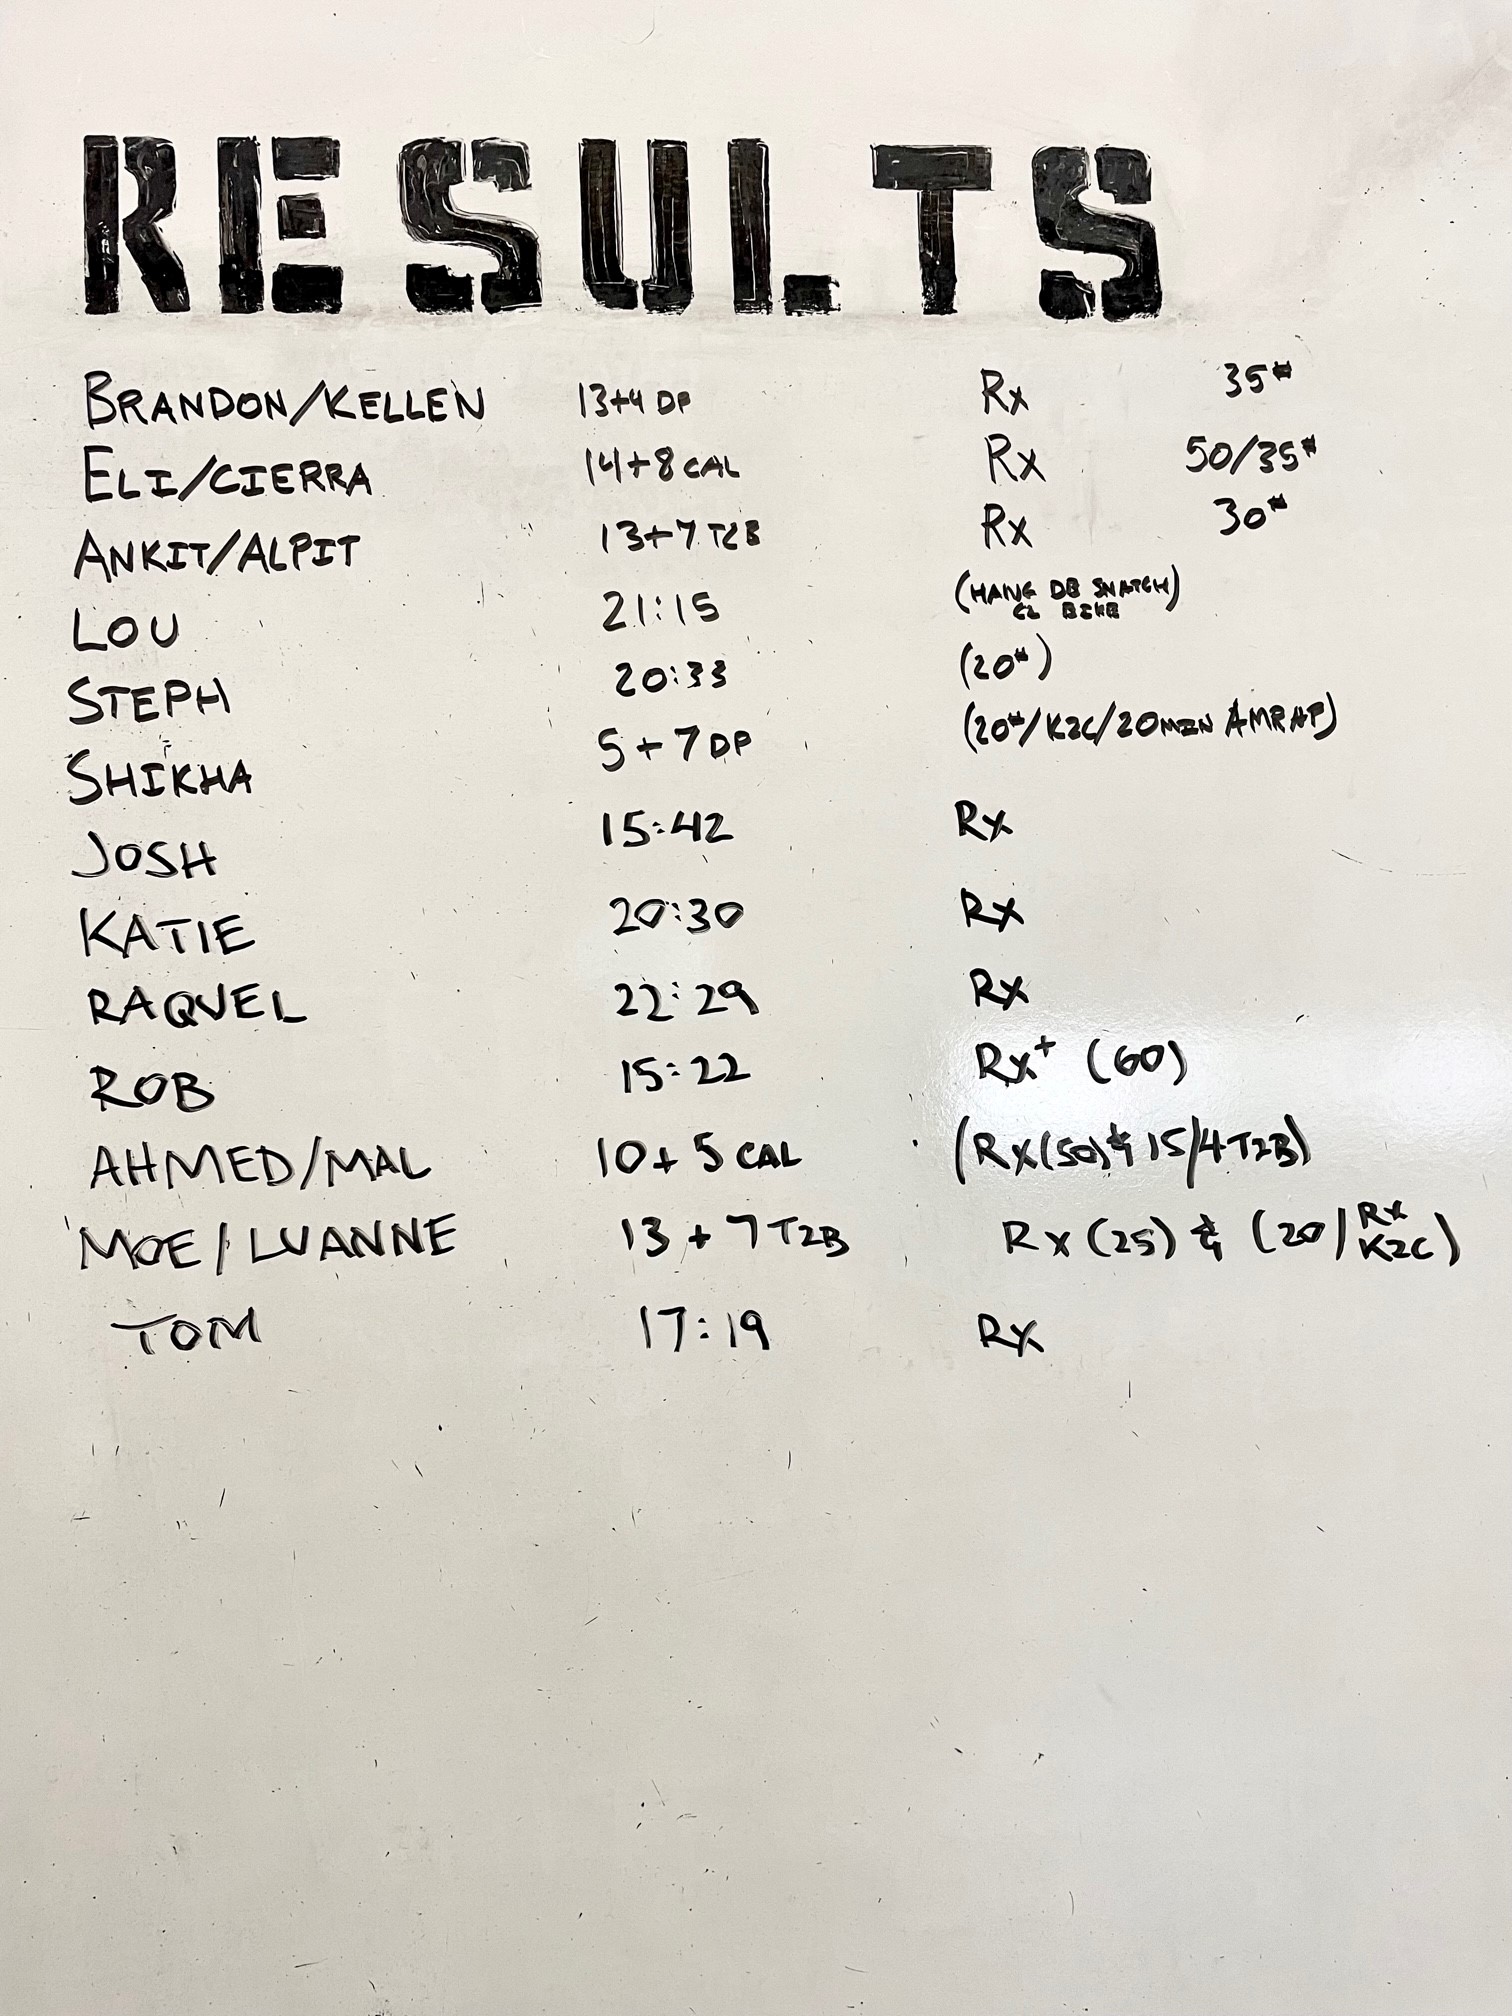 RESULTS
BRANDON/KELLEN 13+4 DP Rx 35#
ELI/CIERRA 14+8 CAL Rx 50/35#
ANKIT/ALPIT 13+7 T2B Rx 30#
LOU 21:15 (HANG DB SNATCH)
BIKE
STEPH 20:33 (20#)
SHIKHA 5+7 DP (20#/K2C/20MIN AMRAP)
JOSH 15:42 Rx
KATIE 20:30 Rx
RAQUEL 22:29 Rx
ROB 15:22 Rx+ (60)
AHMED/MAL 10+5 CAL (Rx(50) & 15/4 T2B)
MOE/LUANNE 13+7 T2B Rx (25) & (20/Rx
K2C)
TOM 17:19 Rx